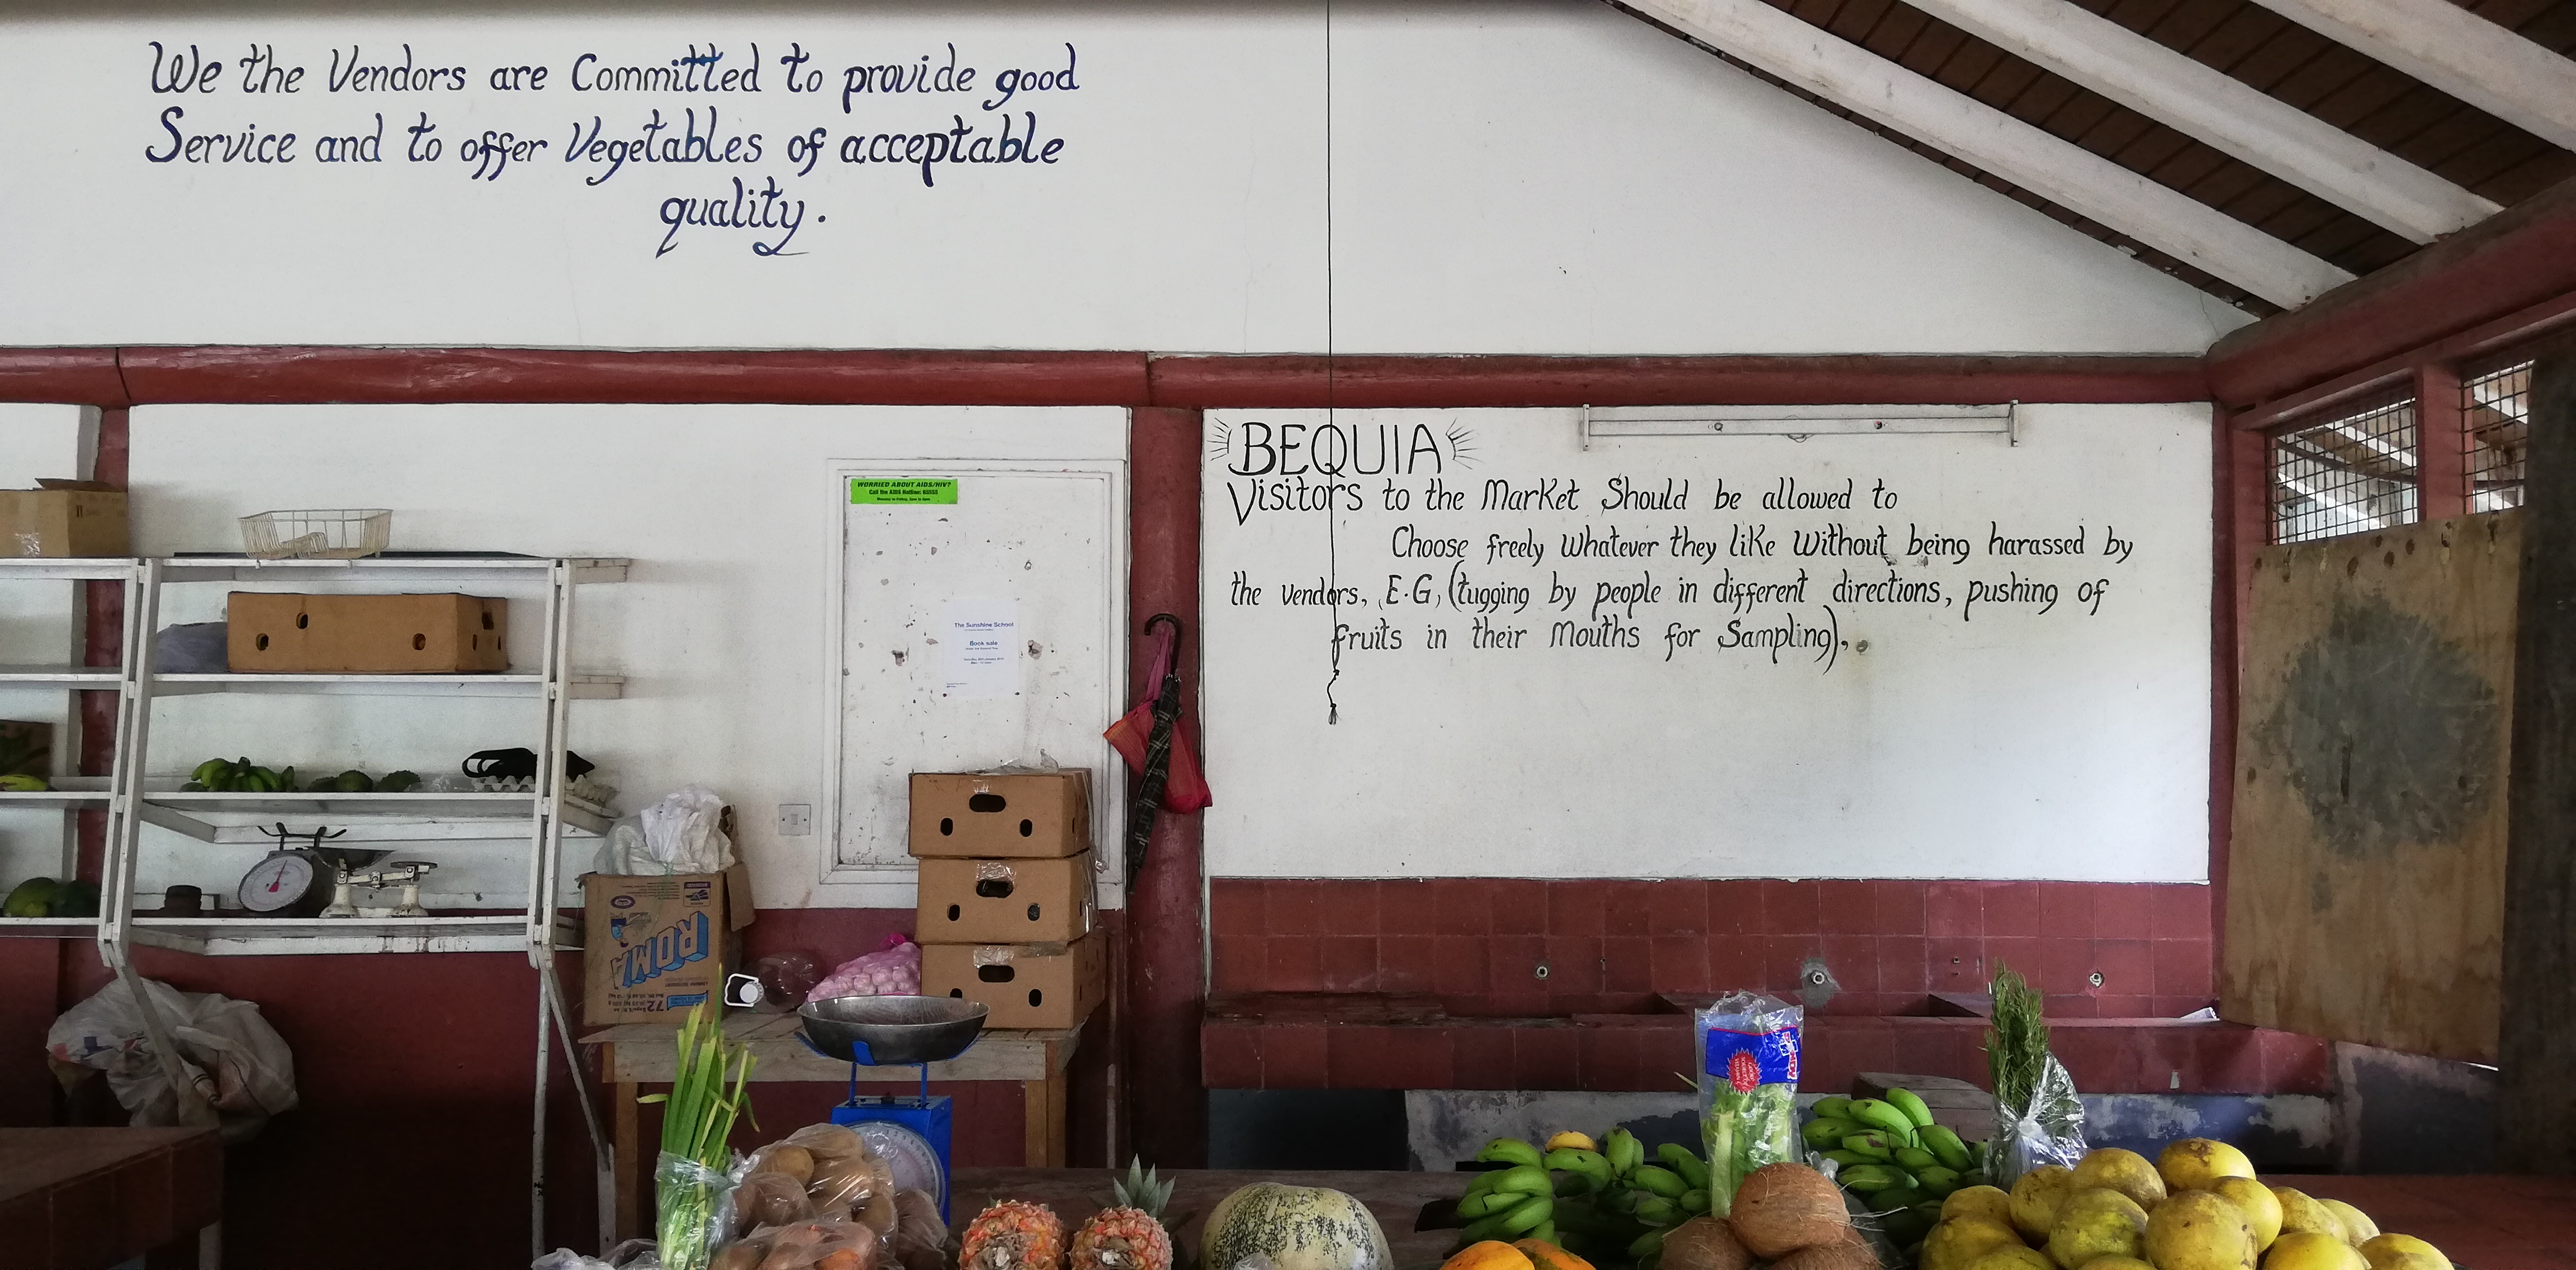 We the Vendors are Committed to provide good
Service and to offer Vegetables of acceptable
quality.
BEQUIA
Visitors to the Market Should be allowed to
Choose freely whatever they like Without being harassed by
the vendors, E.G, (tugging by people in different directions, pushing of
fruits in their Mouths for Sampling),
WORRIED ABOUT AIDS/HIV?
Call the AIDS Hotline:
The Sunshine School
Book sale
ROMA
72